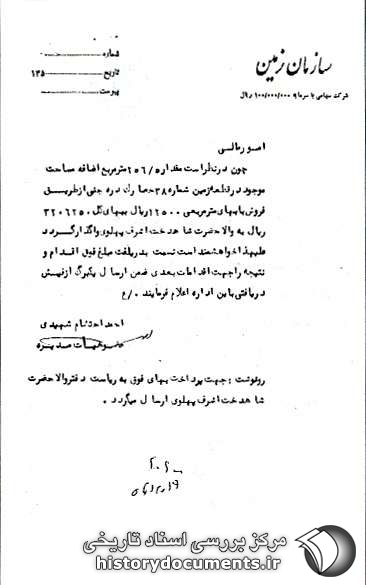 سازمان زمین
شرکت سهامی با سرمایه ۱۰۰/۰۰۰/۰۰۰ ریال
شماره
تاریخ ۱۳۵
پیوست
امور مالی
چون در نظر است مقدار ۲۵۶/۵ مترمربع اضافه مساحت
موجود در قطعه زمین شماره ۳۸ حصارک دره جنی از طریق
فروش با بهای مترمربعی ۱۲۵۰۰ ریال ببهای کل ۳۲۰۶۲۵۰
ریال به والاحضرت شاهدخت اشرف پهلوی واگذار گردد
علیهذا خواهشمند است نسبت بدریافت مبلغ فوق اقدام و
نتیجه را جهت اقدامات بعدی ضمن ارسال یکبرگ از فیش
دریافتی باین اداره اعلام فرمایند ۰/ع
احمد احتشام شهیدی
عضو هیات مدیره
رونوشت : جهت پرداخت بهای فوق به ریاست دفتر والاحضرت
شاهدخت اشرف پهلوی ارسال میگردد ۰
مرکز بررسی اسناد تاریخی
historydocuments.ir